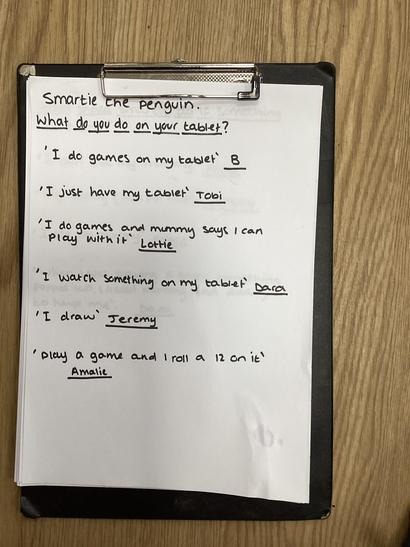 Smartie the penguin.
What do you do on your tablet?
'I do games on my tablet' B
'I just have my tablet' Tobi
'I do games and mummy says I can
play with it' Lottie
'I watch something on my tablet' Dara
'I draw' Jeremy
'play a game and I roll a 12 on it'
Amalie